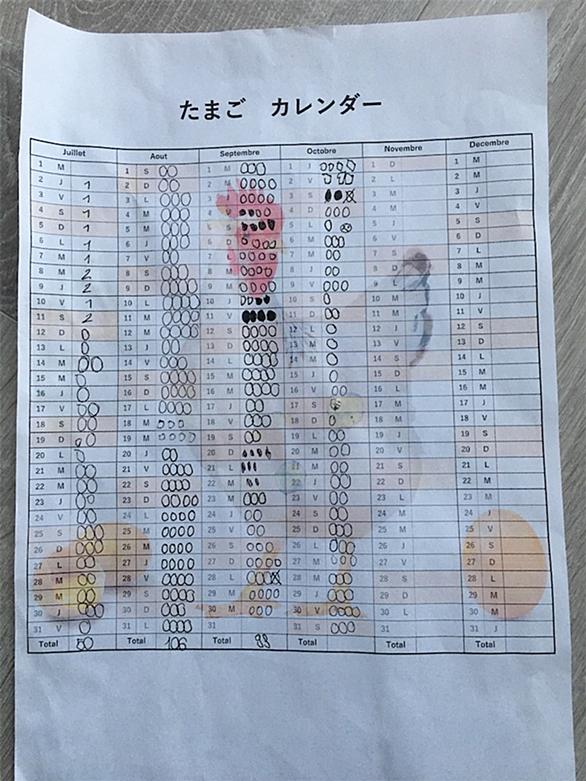 たまご カレンダー
Juillet Aout Septembre Octobre Novembre Decembre
1 M 1 S 1 M 1 J 1 D 1 M
2 J 1 2 D 2 M 2 V 2 L 2 M
3 V 1 3 L 3 J 3 S 3 M 3 J
4 S 1 4 M 4 V 4 D 4 M 4 V
5 D 1 5 M 5 S 5 L 5 J 5 S
6 L 1 6 J 6 D 6 M 6 V 6 D
7 M 1 7 V 7 L 7 M 7 S 7 L
8 M 2 8 S 8 M 8 J 8 D 8 M
9 J 2 9 D 9 M 9 V 9 L 9 M
10 V 1 10 L 10 J 10 S 10 M 10 J
11 S 2 11 M 11 V 11 D 11 M 11 V
12 D 12 M 12 S 12 L 12 J 12 S
13 L 13 J 13 D 13 M 13 V 13 D
14 M 14 V 14 L 14 M 14 S 14 L
15 M 15 S 15 M 15 J 15 D 15 M
16 J 16 D 16 M 16 V 16 L 16 M
17 V 17 L 17 J 17 S 17 M 17 J
18 S 18 M 18 V 18 D 18 M 18 V
19 D 19 M 19 S 19 L 19 J 19 S
20 L 20 J 20 D 20 M 20 V 20 D
21 M 21 V 21 L 21 M 21 S 21 L
22 M 22 S 22 M 22 J 22 D 22 M
23 J 23 D 23 M 23 V 23 L 23 M
24 V 24 L 24 J 24 S 24 M 24 J
25 S 25 M 25 V 25 D 25 M 25 V
26 D 26 M 26 S 26 L 26 J 26 S
27 L 27 J 27 D 27 M 27 V 27 D
28 M 28 V 28 L 28 M 28 S 28 L
29 M 29 S 29 M 29 J 29 D 29 M
30 J 30 D 30 M 30 V 30 L 30 M
31 V 31 L 31 31 S 31 31 J
Total 50 Total 106 Total Total Total Total